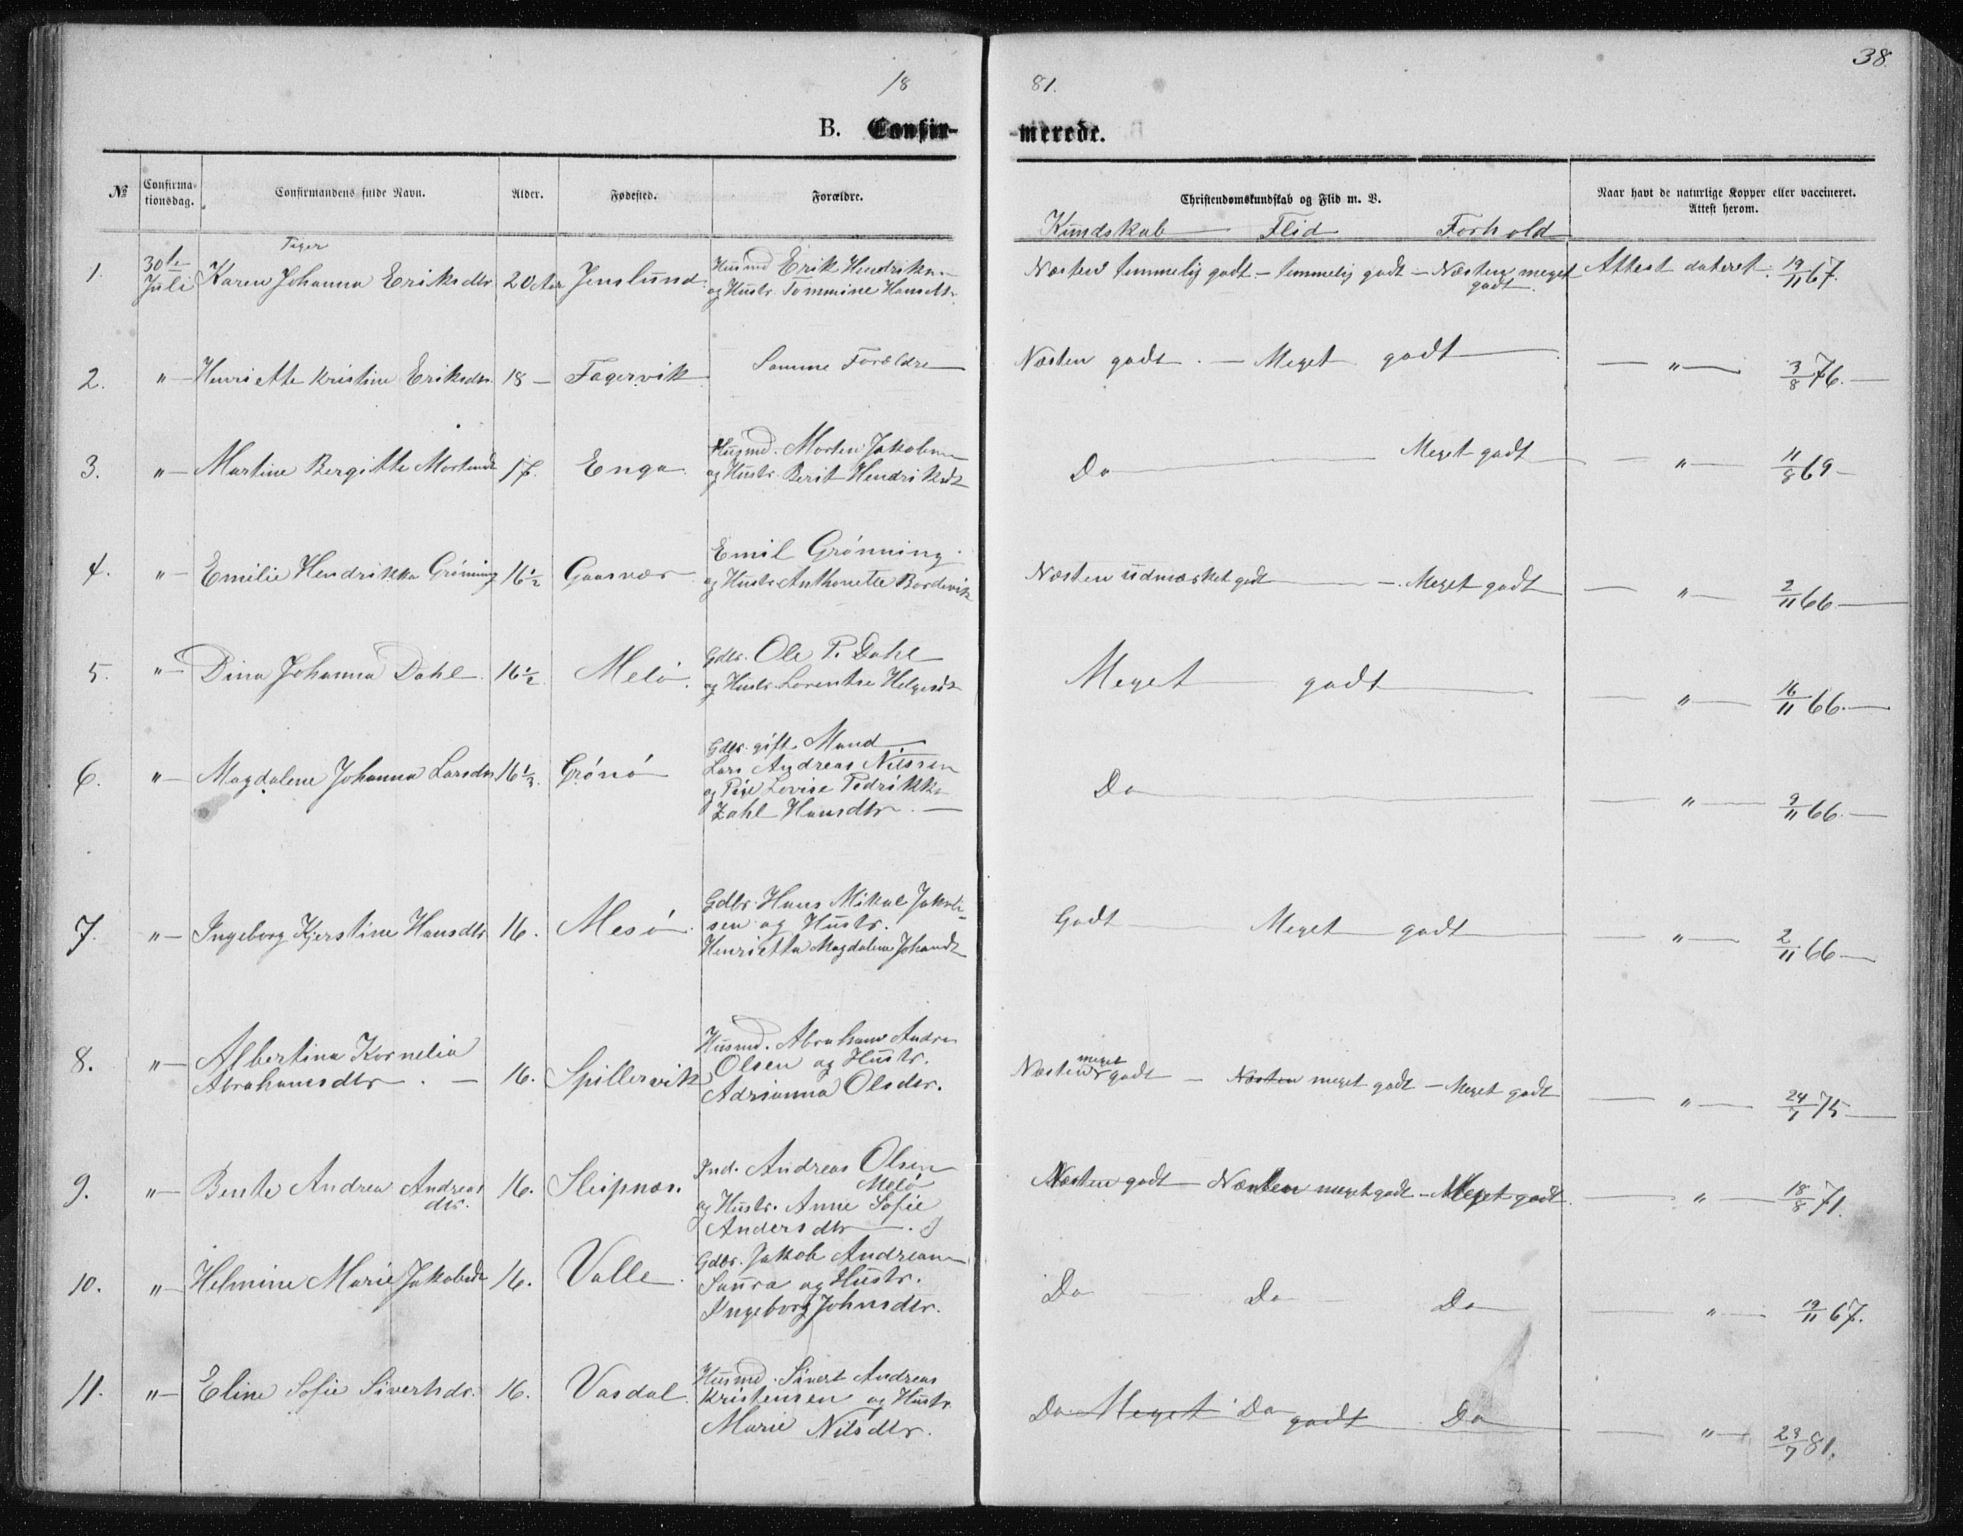 38.
18 81.
B. Confir- merede.
№ Confirma-tionsdag. Confirmandens fulde Navn. Alder. Fødested. Forældre. Christendomskundskab og Flid m. V. Naar havt de naturlige Kopper eller vaccineret. Attest herom.
Kundskab Flid Forhold
Piger
1. 30te Juli Karen Johanna Eriksdtr 20 Aar Jenslund Husmd Erik Hendriksen
og Hustr. Tommine Hansdtr. Næsten temmelig godt – temmelig godt – Næsten meget godt. Attest dateret 19/11 67.
2. " Henriette Kristine Eriksdtr. 18 – Fagervik Samme Forældre Næsten godt. – Meget godt " 3/8 76.
3. " Martine Bergitte Mortensdtr 17. Enga Husmd. Morten Jakobsen
og Hustr. Berit Hendriksdt Do Meget godt " 11/8 69
4. " Emilie Hendrikka Grønning 16½ Gaasvær Emil Grønning
og Hustr. Anthonette Bordevik Næsten udmærket godt – Meget godt " 2/11 66
5. " Dina Johanna Dahl. 16½ Melø. Gdbr. Ole P. Dahl
og Hustr. Lorentse Helgesdt Meget godt " 16/11 66.
6. " Magdalene Johanna Larsdtr 16⅓. Grønø Gdbr. gift Mand
Lars Andreas Nilssen
og Pige Lovise Pedrikka
Zahl Hansdtr. Do " 9/11 66.
7. " Ingeborg Kjerstine Hansdtr 16. Mesø. Gdbr. Hans Mikal Jakob-
sen og Hustr.
Henrietta Magdalena Johansdt Godt Meget godt " 2/11 66
8. " Albertina Kornelia
Abrahamsdtr. 16. Spillervik Husmd. Abraham Andre
Olsen og Hustr.
Adrianna Olsdtr. Næsten meget godt – Næsten meget godt – Meget godt " 24/7 75
9. " Bente Andrea Andreas
dtr. 16. Sleipnæs. Ind. Andreas Olsen
Melø
og Hustr. Anne Sofie
Andersdtr Næsten godt – Næsten meget godt – Meget godt. " 18/8 71.
10. " Helmine Marie Jakobsdt 16. Valle. Gdbr. Jakob Andreas
Saura og Hustr.
Ingeborg Johnsdtr. Do Do Do " 19/11 67.
11. " Eline Sofie Sivertsdr. 16. Vasdal. Husmd. Sivert Andreas
Kristensen og Hustr.
Marie Nilsdtr. Do Meget Do godt Do " 23/7 81.